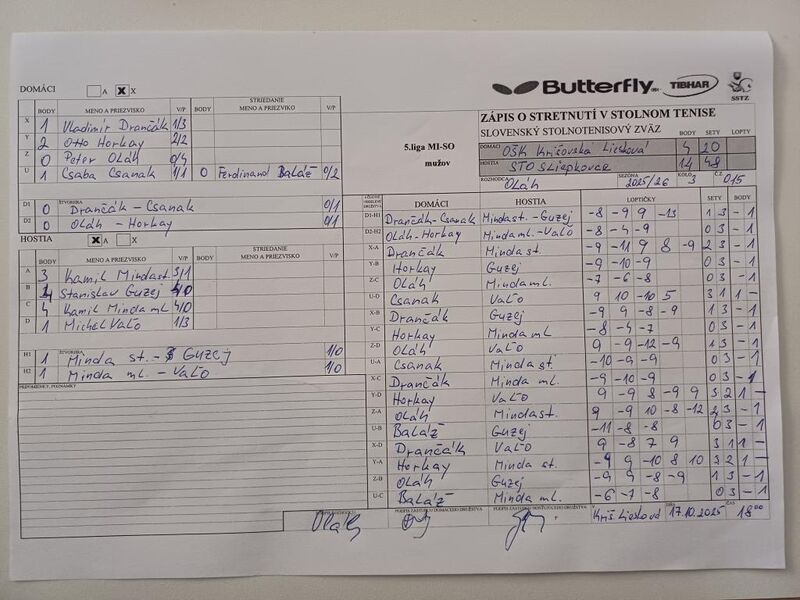 DOMÁCI A X X
Butterfly TIBHAR SSTZ
BODY MENO A PRIEZVISKO V/P BODY STRIEDANIE MENO A PRIEZVISKO V/P
ZÁPIS O STRETNUTÍ V STOLNOM TENISE
SLOVENSKÝ STOLNOTENISOVÝ ZVÄZ BODY SETY LOPTY
5.liga MI-SO
mužov
DOMÁCI OŠK Krížovska Liesková 4 20
HOSTIA STO Sliepkovce 14 48
ROZHODCA Oláh SEZÓNA 2025/26 KOLO 3 Č.Z 015
X 1 Vladimír Drančák 1/3
Y 2 Otto Horkay 2/2
Z 0 Peter Oláh 0/4
U 1 Csaba Csanak 1/1 0 Ferdinand Baláž 0/2
D1 ŠTVORHRA 0 Drančák - Csanak 0/1
D2 0 Oláh - Horkay 0/1
HOSTIA X A X
BODY MENO A PRIEZVISKO V/P BODY STRIEDANIE MENO A PRIEZVISKO V/P
A 3 Kamil Minda st. 3/1
B 4 Stanislav Guzej 4/0
C 4 Kamil Minda ml 4/0
D 1 Michel Vaľo 1/3
H1 ŠTVORHRA 1 Minda st. - Guzej 1/0
H2 1 Minda ml. - Vaľo 1/0
PRIPOMIENKY, POZNÁMKY
DOMÁCI HOSTIA LOPTIČKY SETY BODY
D1-H1 Drančák-Csanak Minda st. - Guzej -8 -9 9 -13 1 3 - 1
D2-H2 Oláh-Horkay Minda ml. - Vaľo -8 -4 -9 0 3 - 1
X-A Drančák Minda st. -9 -11 9 8 -9 2 3 - 1
Y-B Horkay Guzej -9 -10 -9 0 3 - 1
Z-C Oláh Minda ml. -7 -6 -8 0 3 - 1
U-D Csanak Vaľo 9 10 -10 5 3 1 1 -
X-B Drančák Guzej -9 9 -8 -9 1 3 - 1
Y-C Horkay Minda ml -8 -4 -7 0 3 - 1
Z-D Oláh Vaľo 9 -9 -12 -9 1 3 - 1
U-A Csanak Minda st. -10 -9 -9 0 3 - 1
X-C Drančák Minda ml. -9 -10 -9 0 3 - 1
Y-D Horkay Vaľo 9 -9 8 -9 9 3 2 1 -
Z-A Oláh Minda st. 9 -9 10 -8 -12 2 3 - 1
U-B Baláž Guzej -11 -8 -8 0 3 - 1
X-D Drančák Vaľo 9 -8 7 9 3 1 1 -
Y-A Horkay Minda st. -9 9 -10 8 10 3 2 1 -
Z-B Oláh Guzej -9 9 -8 -9 1 3 - 1
U-C Baláž Minda ml. -6 -7 -8 0 3 - 1
PODPIS ZÁSTUPCU DOMÁCEHO DRUŽSTVA PODPIS ZÁSTUPCU HOSŤUJÚCEHO DRUŽSTVA ČAS
Oláh Kriš Liesková 17.10.2025 18 00